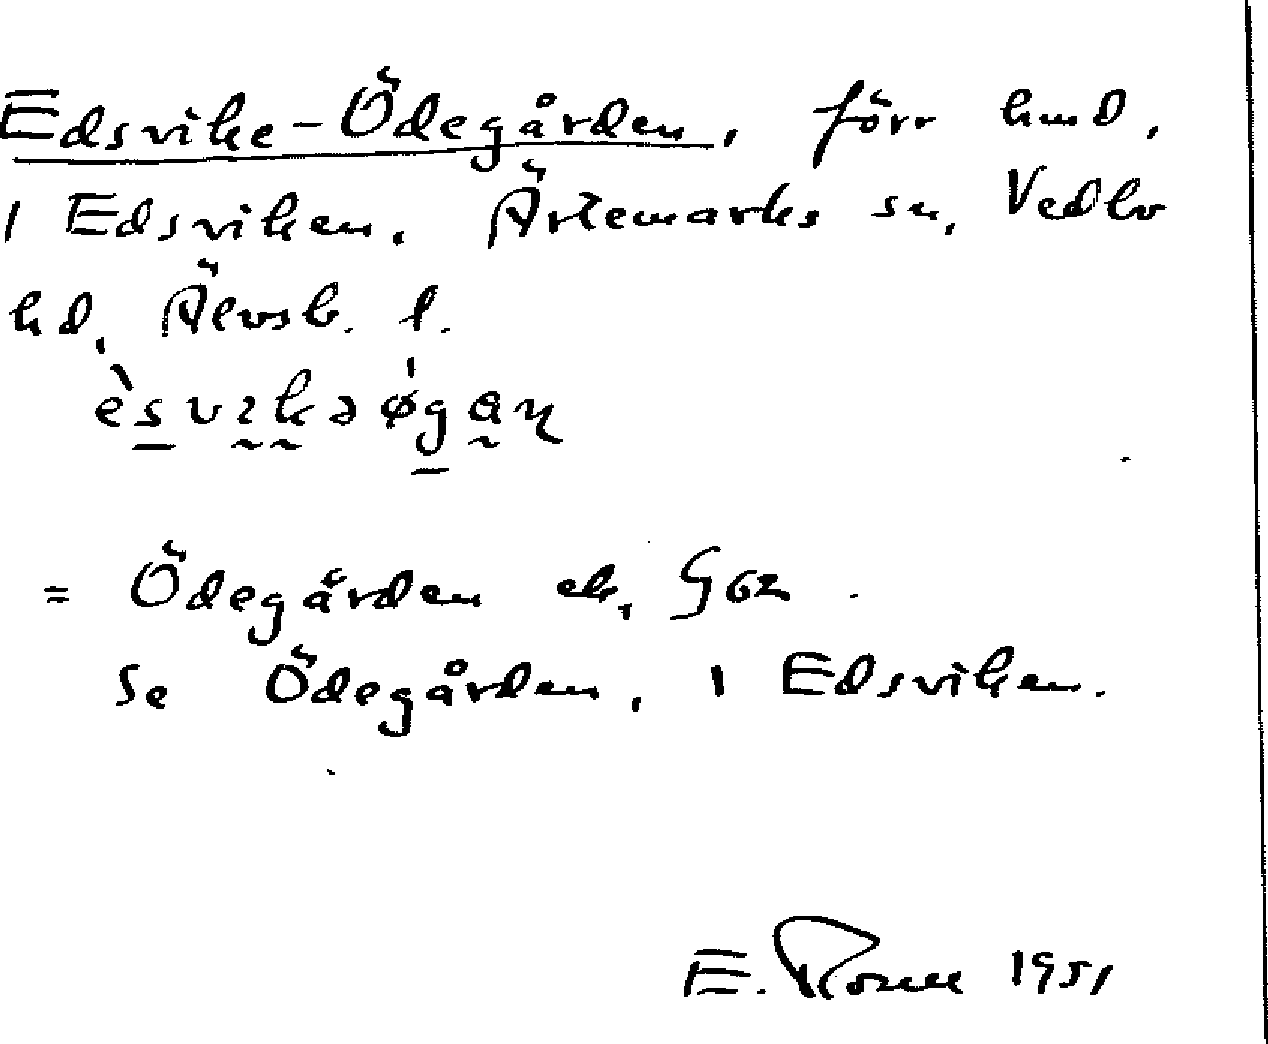 Edsvike-Ödegården, förr hmd,
i Edsviken. Ärtemarks sn, Vedbo
hd, Älvsb. l.
= Ödegården ek, G62
Se Ödegården, i Edsviken.
E. 1951